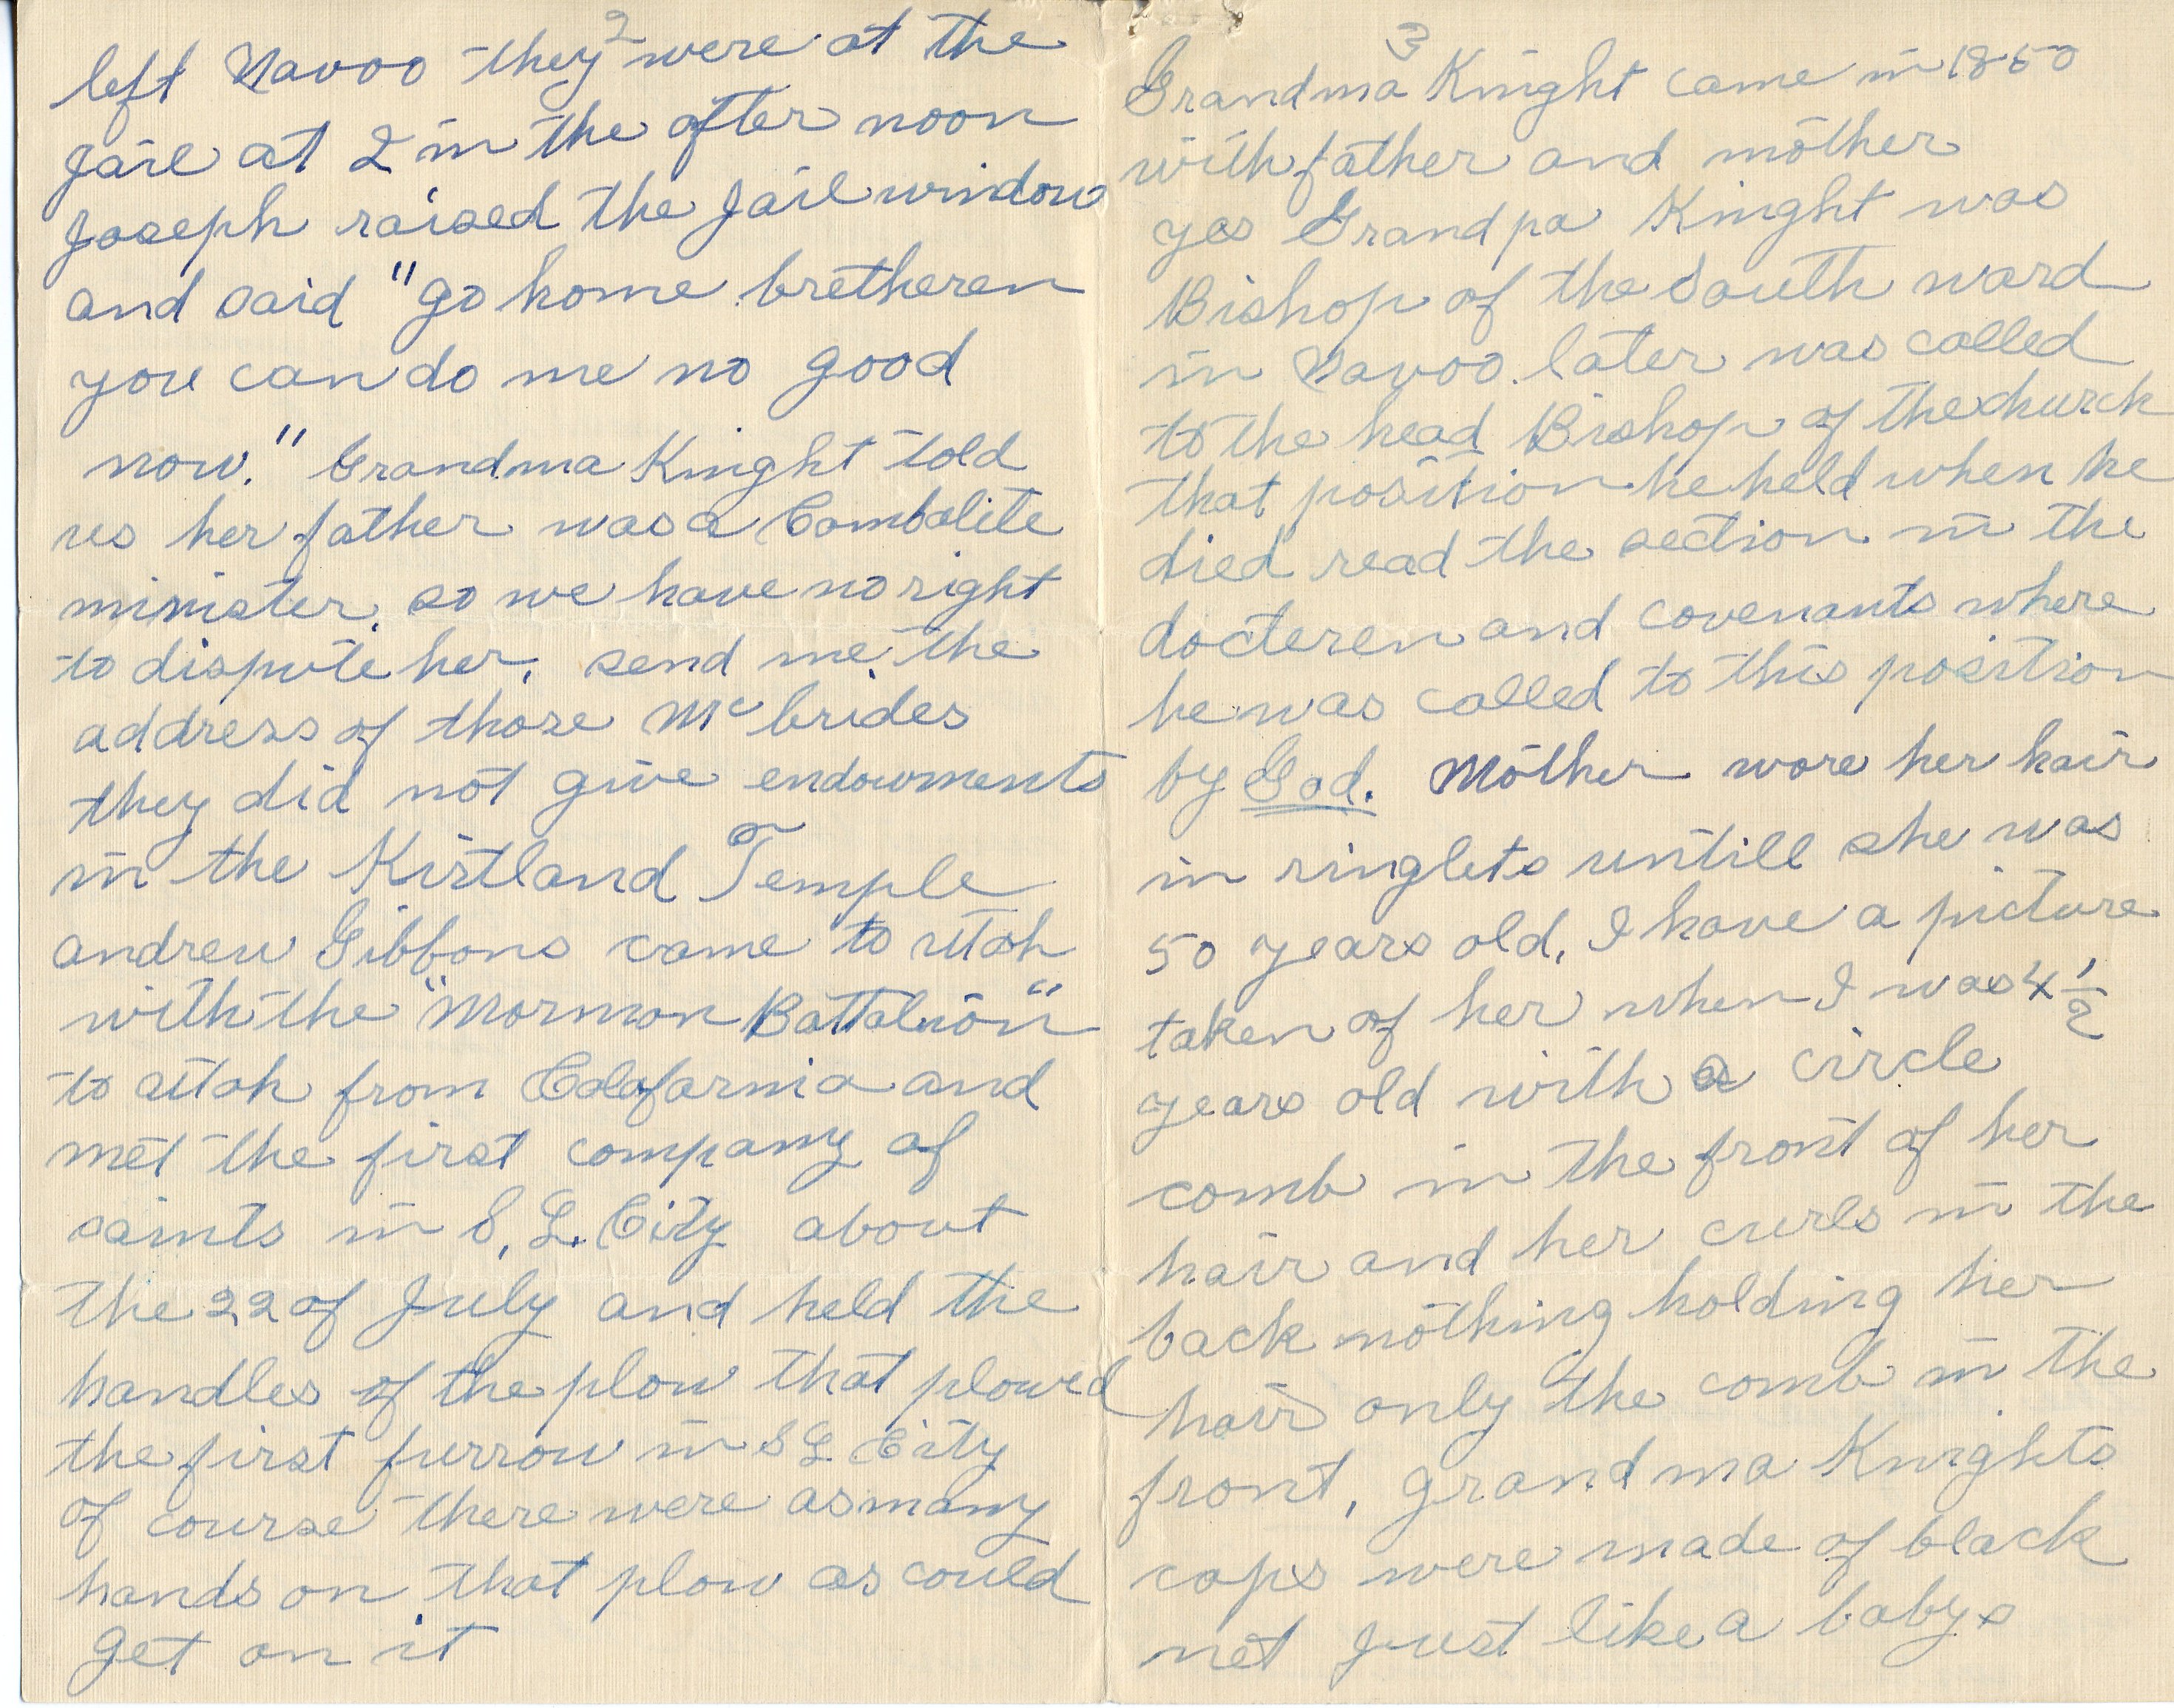 2
left Navoo they were at the
Jail at 2 in the after noon
Joseph raised the Jail window
and said "go home bretheren
you can do me no good
now." Grandma Knight told
us her father was a Cambalite
minister. so we have no right
to dispute her. send me the
address of those McBrides
they did not give endowments
in the Kirtland Temple
andrew Gibbons came to utah
with the "Mormon Battalion"
to utah from Calafornia and
met the first company of
saints in S. L. City about
the 22 of July and held the
handles of the plow that plowed
the first furrow in S L City
of course there were as many
hands on that plow as could
get on it
3
Grandma Knight came in 1850
with father and mother
yes Grandpa Knight was
Bishop of the South ward
in Navoo. later was called
to the head Bishop of the church
that position he held when he
died read the section in the
docteren and covenants where
he was called to this position
by God. Mother wore her hair
in ringlets untill she was
50 years old. I have a picture
taken of her when I was 4 1/2
years old with a circle
comb in the front of her
hair and her curls in the
back nothing holding her
hair only the comb in the
front, grandma Knights
caps were made of black
net Just like a babys